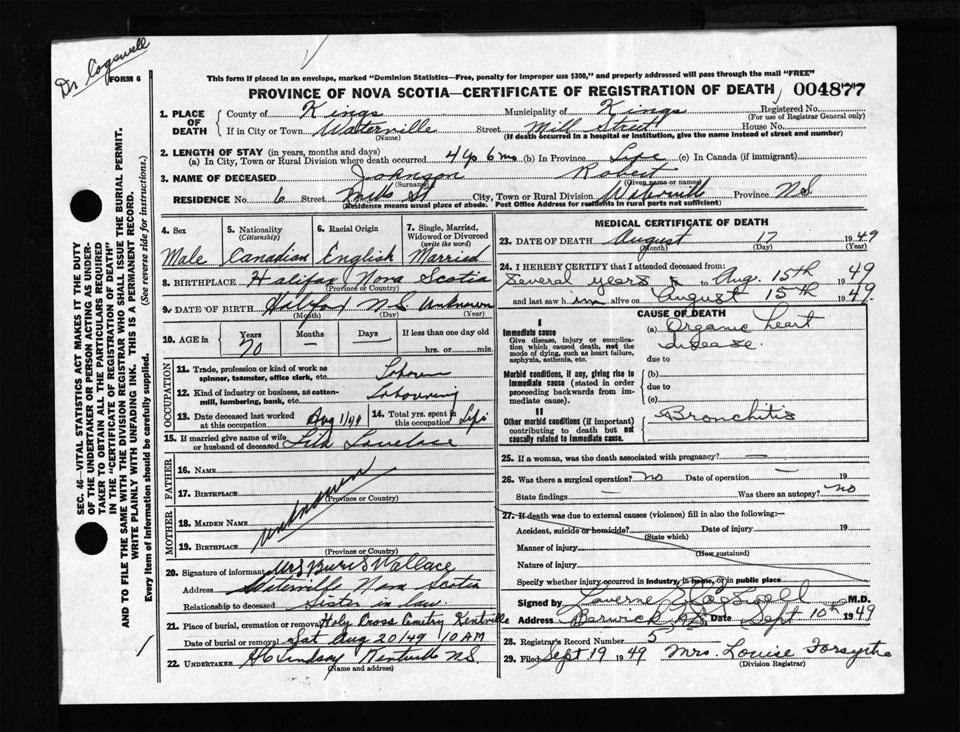 Dr. Cogswell
FORM 6
This form if placed in an envelope, marked "Dominion Statistics—Free, penalty for improper use $300," and properly addressed will pass through the mail "FREE"
PROVINCE OF NOVA SCOTIA—CERTIFICATE OF REGISTRATION OF DEATH 004877
SEC. 46—VITAL STATISTICS ACT MAKES IT THE DUTY
OF THE UNDERTAKER OR PERSON ACTING AS UNDER-
TAKER TO OBTAIN ALL THE PARTICULARS REQUIRED
IN THE "CERTIFICATE OF REGISTRATION OF DEATH"
AND TO FILE THE SAME WITH THE DIVISION REGISTRAR WHO SHALL ISSUE THE BURIAL PERMIT.
WRITE PLAINLY WITH UNFADING INK. THIS IS A PERMANENT RECORD.
Every item of information should be carefully supplied. (See reverse side for instructions.)
1. PLACE OF DEATH
County of Kings Municipality of Kings Registered No.
(For use of Registrar General only)
If in City or Town Waterville Street Mill Street House No.
(Name) (If death occurred in a hospital or institution, give the name instead of street and number)
2. LENGTH OF STAY (in years, months and days)
(a) In City, Town or Rural Division where death occurred 4 y 6 mo (b) In Province Life (c) In Canada (if immigrant)
3. NAME OF DECEASED Johnson Robert
(Surname) (Given name or names)
RESIDENCE No. 6 Street Mills St City, Town or Rural Division Waterville Province N.S.
(Residence means usual place of abode. Post Office Address for residents in rural parts not sufficient)
4. Sex 5. Nationality (Citizenship) 6. Racial Origin 7. Single, Married, Widowed or Divorced (write the word)
Male Canadian English Married
8. BIRTHPLACE Halifax Nova Scotia
(Province or Country)
9. DATE OF BIRTH Halifax N.S. Unknown
(Month) (Day) (Year)
10. AGE in Years Months Days If less than one day old
70 — — hrs. or min.
OCCUPATION
11. Trade, profession or kind of work as
spinner, teamster, office clerk, etc. Laborer
12. Kind of industry or business, as cotton-
mill, lumbering, bank, etc. Labouring
13. Date deceased last worked
at this occupation Aug 1/49 14. Total yrs. spent in this occupation Life
15. If married give name of wife
or husband of deceased Lovelace
FATHER
16. NAME
17. BIRTHPLACE
(Province or Country)
MOTHER
18. MAIDEN NAME
19. BIRTHPLACE
(Province or Country)
unknown
20. Signature of informant Mrs Wallace
Address Waterville Nova Scotia
Relationship to deceased Sister in law
21. Place of burial, cremation or removal Holy Cross Cemetry Kentville
Date of burial or removal Sat Aug 20/49 10 AM
22. UNDERTAKER Lindsay Kentville N.S.
(Name and address)
MEDICAL CERTIFICATE OF DEATH
23. DATE OF DEATH August 17 1949
(Month) (Day) (Year)
24. I HEREBY CERTIFY that I attended deceased from:
Several years to Aug. 15th 1949
and last saw him alive on August 15TH 1949.
CAUSE OF DEATH
I
Immediate cause
Give disease, injury or complica-
tion which caused death, not the
mode of dying, such as heart failure,
asphyxia, asthenia, etc.
(a) Organic heart
disease.
due to
Morbid conditions, if any, giving rise to
immediate cause (stated in order
proceeding backwards from im-
mediate cause).
(b)
due to
(c)
II
Other morbid conditions (if important)
contributing to death but not
causally related to immediate cause.
Bronchitis
25. If a woman, was the death associated with pregnancy? —
26. Was there a surgical operation? no Date of operation — 19
State findings — Was there an autopsy? no
27. If death was due to external causes (violence) fill in also the following:—
Accident, suicide or homicide? Date of injury 19
(State which)
Manner of injury
(How sustained)
Nature of injury
Specify whether injury occurred in industry, in home, or in public place
Signed by Laverne Cogswell M.D.
Address Berwick N.S. Date Sept 10th 1949
28. Registrar's Record Number 5
29. Filed Sept 19 1949 Mrs. Louise Forsythe
(Division Registrar)